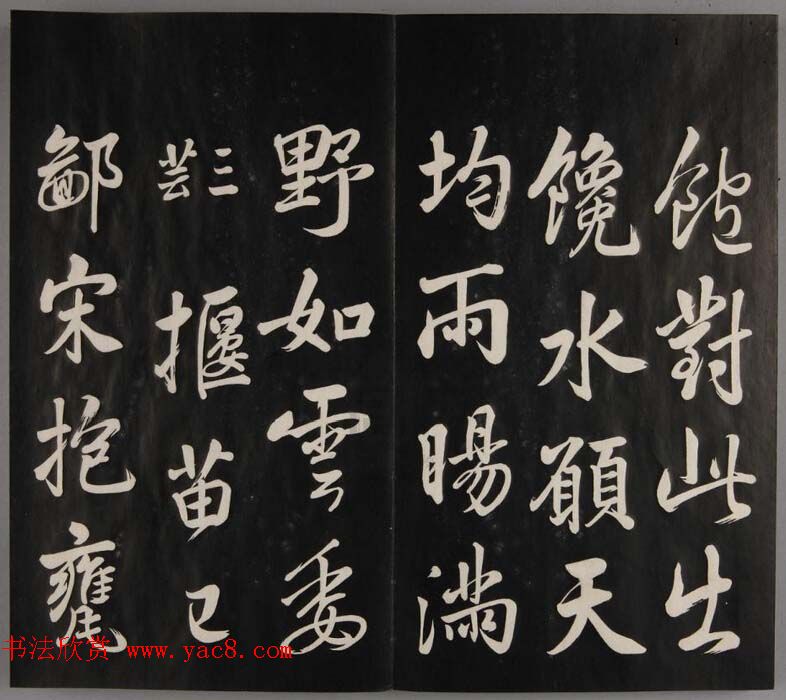 飽對此出
饞水願天
均雨暘滿
野如雲委
三
芸
揠苗已
鄙宋抱甕
书法欣赏 www.yac8.com